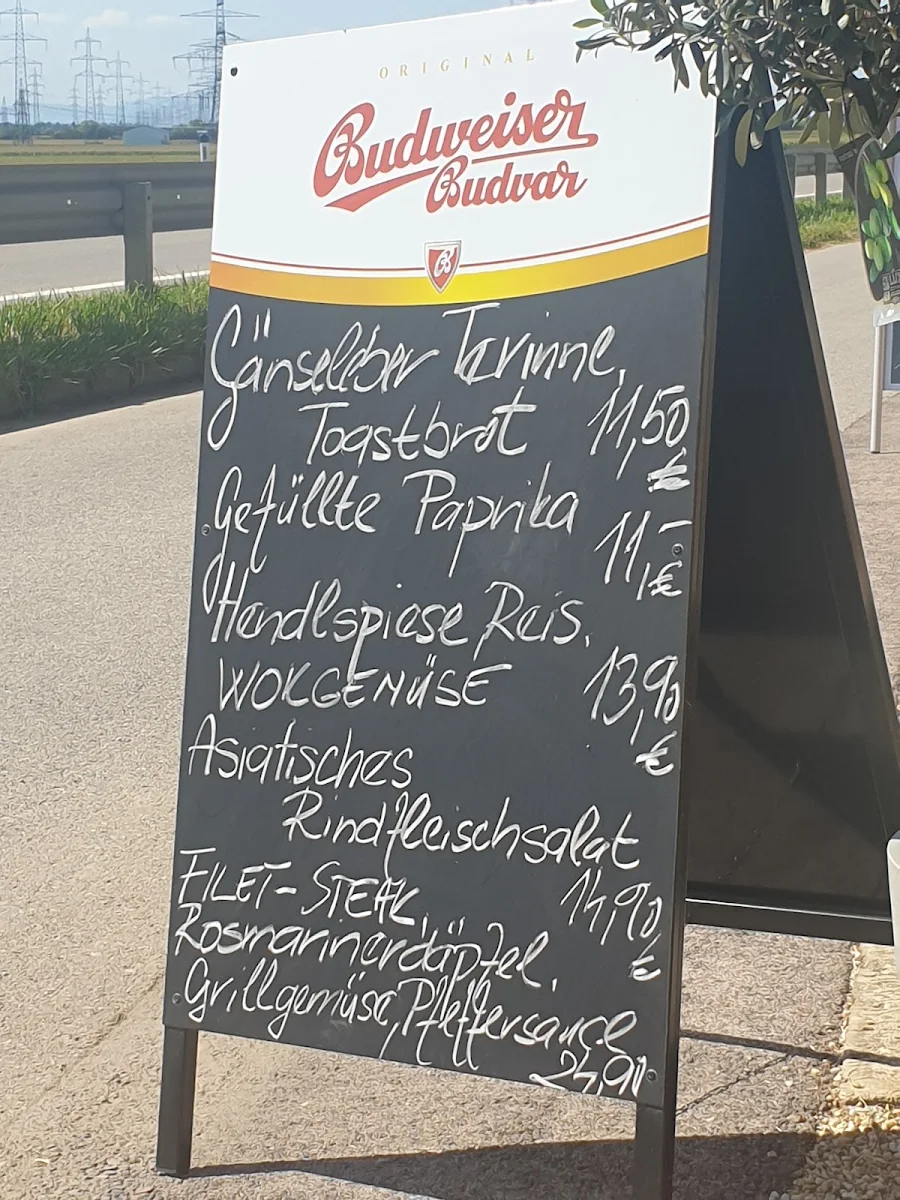 ORIGINAL
Budweiser
Budvar
B
Gänseleber Terinne,
Toastbrot 11,50
€
Gefüllte Paprika
11,-
€
Hendlspiese Reis,
WOKGEMÜSE 13,90
€
Asiatisches
Rindfleischsalat
14,90
€
FILET-STEAK,
Rosmarinerdäpfel,
Grillgemüse, Pfeffersauce
24,90